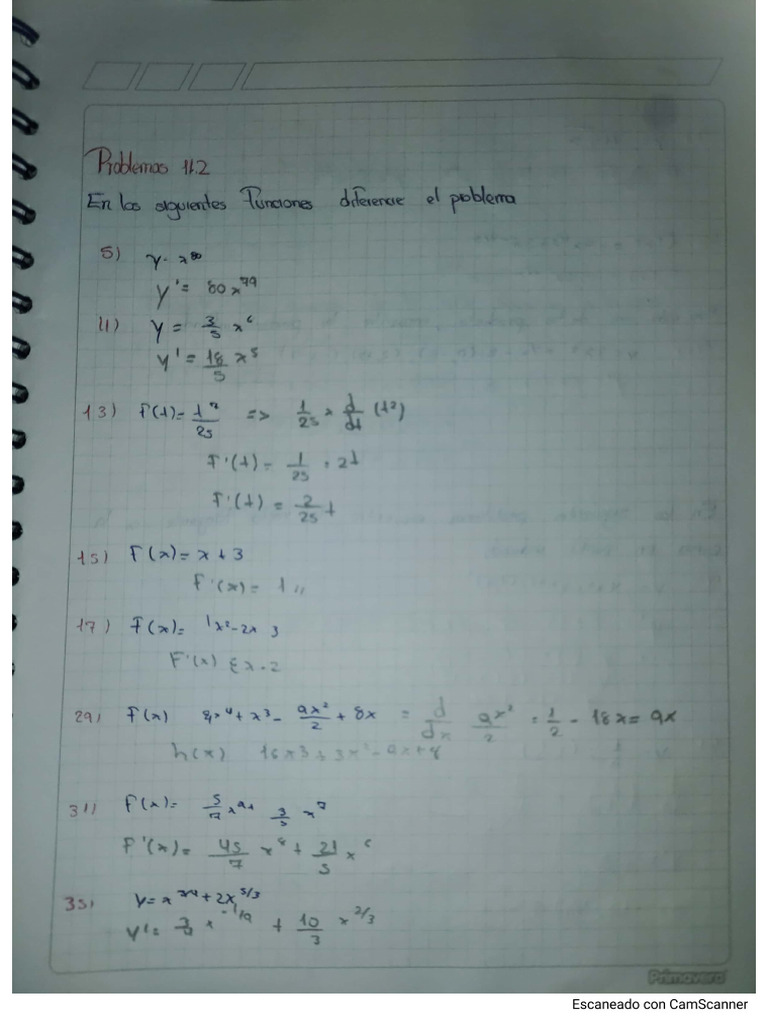 Problemas 11.2
En los siguientes Funciones diferencie el problema
5) y = x^80
y' = 80x^79
11) y = 3/5 x^6
y' = 18/5 x^5
13) F(t) = t^2/25 => 1/25 * d/dt (t^2)
F'(t) = 1/25 · 2t
F'(t) = 2/25 t
15) F(x) = x + 3
F'(x) = 1 //
17) F(x) = x^2 - 2x 3
F'(x) x - 2
29) F(x) x^4 + x^3 - 9x^2/2 + 8x = d/dx 9x^2/2 = 1/2 - 18x = 9x
h(x) 16x3 + 3x^2 - 9x + 8
31) F(x) = 5/7 x^9 + 3/5 x^7
F'(x) = 45/7 x^8 + 21/5 x^6
35) y = x^3/4 + 2x^5/3
y' = 3/4 x^-1/4 + 10/3 x^2/3
Primavera
Escaneado con CamScanner